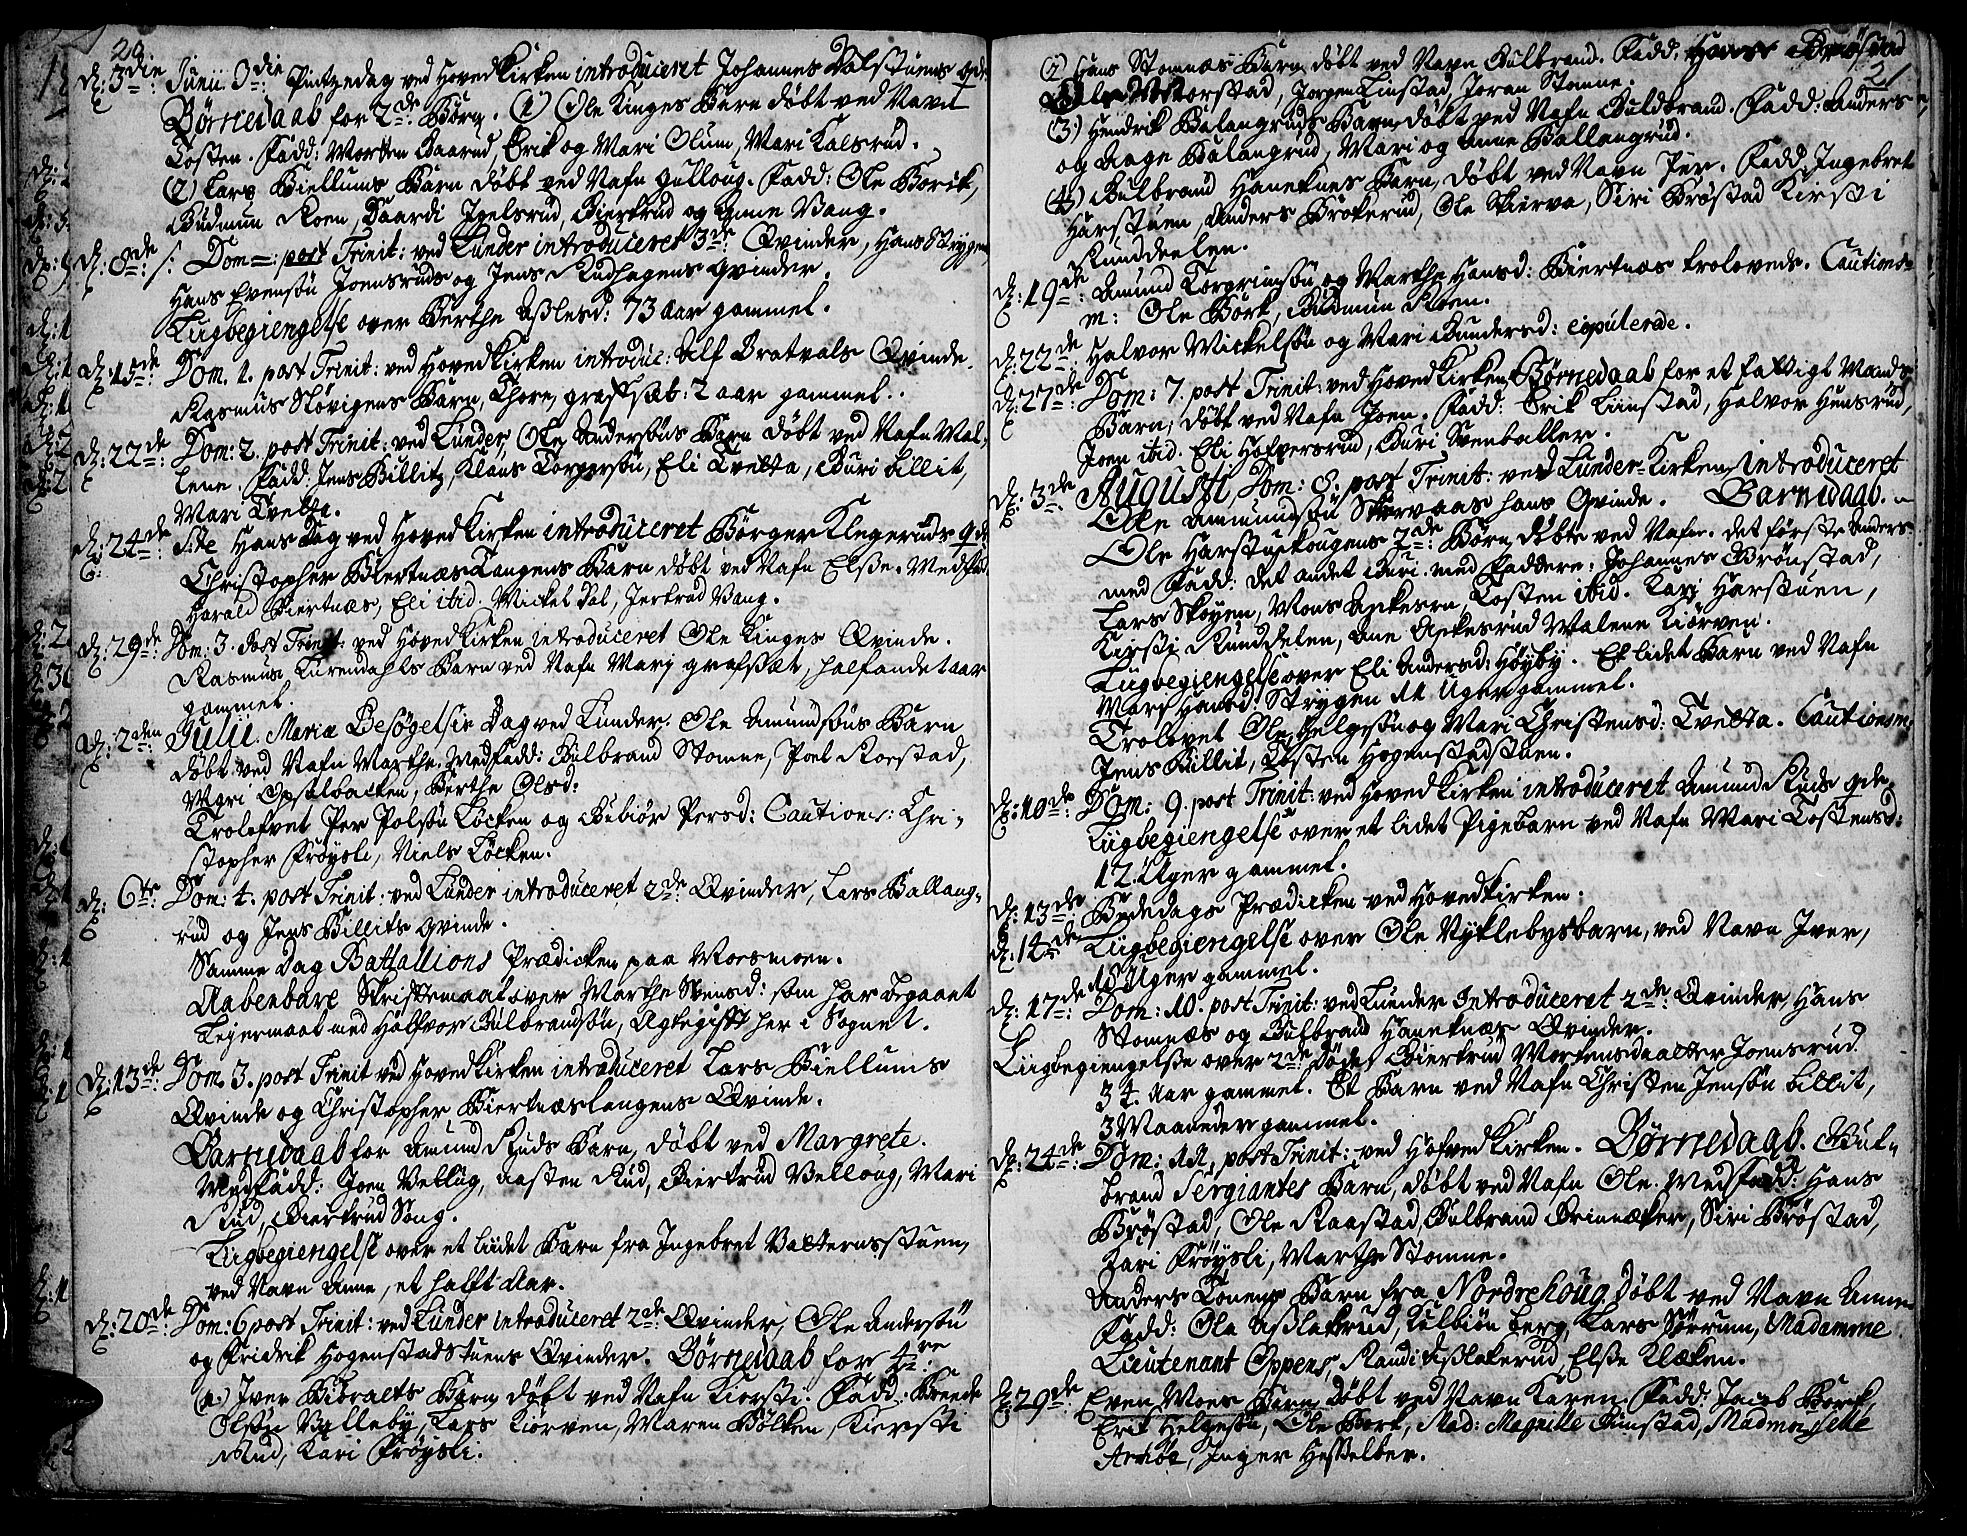 20.
d: 3die Junii 3die Pintzedag ved Hovedkirken introduceret Johannes Dalstuens qde.
Børnedaab for 2de Børn. (1) Ole Ringes Barn døbt ved Navn
Tosten. Fadd: Morten Gaarud, Erik og Mari Olum, Mari Kalsrud.
(2) Lars Kiellums Barn døbt ved Nafn Gulloug. Fadd: Ole Bork,
Gudmun Roen, Gaardi Igelsrud, Giertrud og Anne Vang.
d: 8de: Dom: post Trinit: ved Lunder introduceret 3de Qvinder, Hans Strygen
Hans Evensøn Joensruds og Jens Rudhagens Qvinder.
Liigbegiengelse over Berthe Aslesd: 73 Aar gammel.
d: 15de: Dom. 1. post Trinit: ved Hovedkirken introduc: Alf Bratvals Qvinde.
Rasmus Støvigens Barn, Thore, graffsat: 2 aar gammel.
d: 22de: Dom: 2. post Trinit: ved Lunder, Ole Andersøns Barn døbt ved Nafn Mal-
lene. Fadd: Jens Billit, Klaus Torgersøn, Eli Tvetta, Guri Billit,
Mari Tvetta.
d: 24de: Ste Hans Dag ved Hovedkirken introduceret Børger Klegeruds qde
Christopher Biertnæs Tangens Barn døbt ved Nafn Elsse. Medfadd:
Harald Biertnæs, Eli ibid. Mickel Dal, Jertrud Vang.
d: 29de: Dom: 3. post Trinit: ved Hovedkirken introduceret Ole Ringes Qvinde.
Rasmus Turendahls Barn ved Nafn Marj grafsat, halfandet aar
gammel.
d: 2den: Julii. Mariæ Besøgelsis Dag ved Lunder. Ole Amundsøns Barn
døbt ved Nafn Marthe. Medfadd: Gulbrand Stomne, Poel Roestad,
Mari Opsalbacken, Berthe Olsd:
Trolofvet Per Polsøn Løcken og Gubiør Persd: Cautions: Chri-
stopher Frøysli, Niels Løcken.
d: 6te: Dom: 4. post Trinit: ved Lunder introduceret 2de Qvinder, Lars Ballang-
rud og Jens Billits Qvinde.
Samme Dag Batallions Prædicken paa Moesmoen.
Aabenbare Skriftemaal over Marthe Svensd: som har begaaet
Lejermaal med Halfvor Gulbrandsøn, Agtegifft her i Sognet.
d: 13de: Dom. 3. post Trinit ved Hovedkirken introduceret Lars Kiellums
Qvinde og Christopher Biertnæstangens Qvinde.
Barnedaab for Amund Ruds Barn, døbt ved Margrete.
Medfadd: Joen Velloug, Aasten Rud, Giertrud Velloug, Mari
Rud, Giertrud Song.
Liigbegiengelse over et liidet Barn fra Ingebret Valternsstuen,
ved Navn Anne, et halft Aar.
d: 20de: Dom: 6 post Trinit: ved Lunder introduceret 2de Qvinder, Ole Andersøn
og Fridrik Hogenstadstuens Qvinder. Børnedaab for 4re
(1.) Iver Gibralts Barn døbt ved Nafn Kiersti. Fadd: Brende
Olsøn Valleby, Lars Kiørven, Maren Bølken, Kiersti
Rud, Kari Frøysli.
21
(2) Hans Stomnæs Barn døbt ved Navn Gulbrand. Fadd: Hans Brøstad
Morstad, Jorgen Linstad, Joran Stomne.
(3) Hendrik Balangruds Barn døbt ved Nafn Guldbrand. Fadd: Anders
og Aage Balangrud, Mari og Anne Ballangrud.
(4) Gulbrand Hanseknes Barn, døbt ved Navn Per. Fadd: Ingebret
Harstuen, Anders Brøkerud, Ole Skierva, Siri Brøstad Kirsti
Runddeelen.
d: 19de: Amund Torgrimsøn og Marthe Hansd: Biertnæs trolovede. Cautions-
m: Ole Bork, Gudmun Roen.
d: 22de: Halvor Mickelsøn og Mari Gundersd: copulerede.
d: 27de: Dom: 7. post Trinit: ved Hovedkirken, Børnedaab for et fattigt Mands
Barn, døbt ved Nafn Joen. Fadd: Erik Linstad, Halvor Hunsrud,
Joen ibid. Eli Hofversrud, Guri Svenballer.
d: 3de Augusti, Dom: 8. post Trinit: ved Lunder-Kirken introduceret
Ole Amundsøn Skiervaas hans Qvinde. Barnedaab.
Ole Harstueskougens 2de Børn døbte ved Nafn. det første Anders
med Fadd: det andet Guri. med Faddere: Johannes Brønstad,
Lars Skoyen, Mons Askesru, Tosten ibid. Karj Harstuen,
Kirsti Runddelen, Ane Askesrud Malene Kiørven.
Liigbegiengelse over Eli Andersd: Høyby. Et lidet Barn ved Nafn
Marj Hansd: Strygen 11 Uger gammel.
Trolovet Ole Helgesøn og Mari Christensd: Tvetta. Cautionsm:
Jens Billit, Tosten Hogenstadstuen.
d: 10de: Dom: 9. post Trinit: ved Hovedkirken introduceret Amund Ruds qde.
Liigbegiengelse over et lidet Pigebarn ved Nafn Mari Tostensd:
12 Uger gammel.
d: 13de: Bededags Prædicken ved Hovedkirken:
d: 14de Liigbegiengelse over Ole Nyklebysbarn, ved Navn Iver,
18 Uger gammel.
d: 17de: Dom: 10. post Trinit: ved Lunder Introduceret 2de Qvinder, Hans
Stomnæs og Gulbrand Haneknæs Qvinder.
Liigbegiengelse over 2de Døde, Giertrud Mortensdaatter Joensrud
34. Aar gammel. Et Barn ved Nafn Christen Jensøn Billit,
3 Maaneder gammel.
d: 24de: Dom: 11. post Trinit: ved Hofvedkirken. Børnedaab. Gul-
brand Sergiantes Barn, døbt ved Nafn Ole. Medfadd: Hans
Brøstad, Ole Raastad, Gulbrand Brinnæker, Siri Brøstad,
Kari Frøysli, Marthe Stomne.
Anders Tonens Barn fra Nordrehoug døbt ved Navn Anne
Fadd: Ole Aslakrud, Kulbiøn Berg, Lars Sørrum, Madamme
Lieutenant Oppens, Randi Aslakerud, Else Klæken.
d: 29de Even Moes Barn døbt ved Navn Karen. Fadd: Jacob Bork,
Erik Helgesøn, Ole Bork, Mad: Magnille Finstad, Madmoiselle
Inger Hesselber.